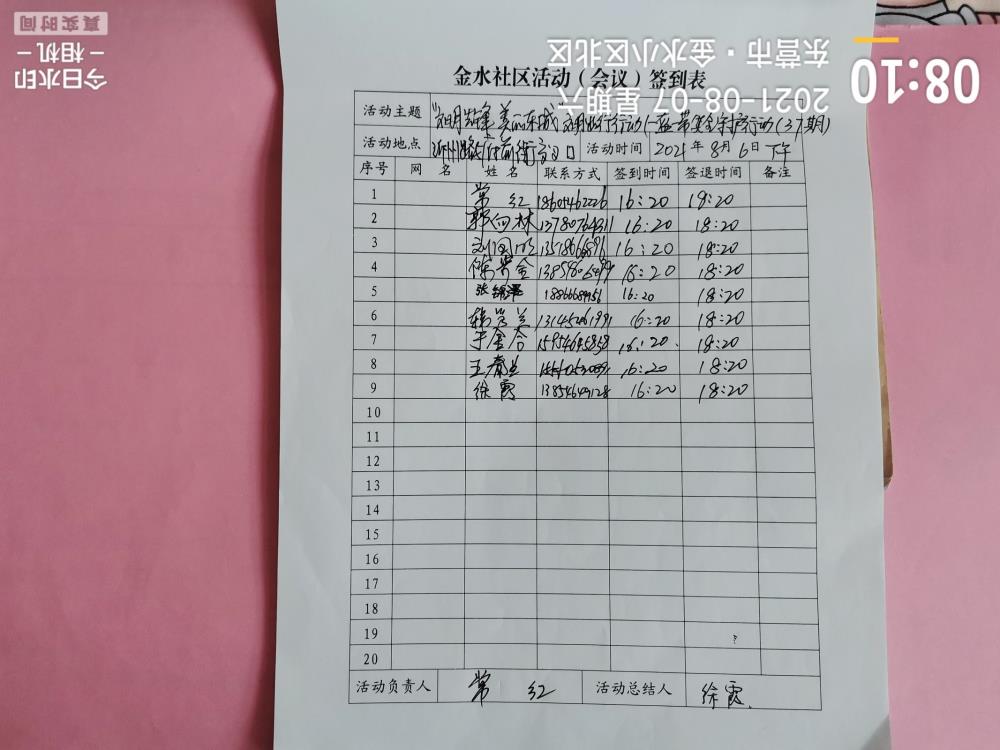 真实时间
今日水印
相机
08:10
东营市·金水小区北区
2021-08-07 星期六
金水社区活动（会议）签到表
活动主题 文明先锋 美丽东城 文明出行行动 (37期)
活动地点 活动时间 2021年8月6日下午
序号 网名 姓名 联系方式 签到时间 签退时间 备注
1 常红 18605462226 16:20 18:20
2 郭向林 13780764311 16:20 18:20
3 16:20 18:20
4 16:20 18:20
5 16:20 18:20
6 13145261991 16:20 18:20
7 于金合 15954645858 16:20 18:20
8 16:20 18:20
9 徐霞 13854649128 16:20 18:20
10
11
12
13
14
15
16
17
18
19
20
活动负责人 常红 活动总结人 徐霞